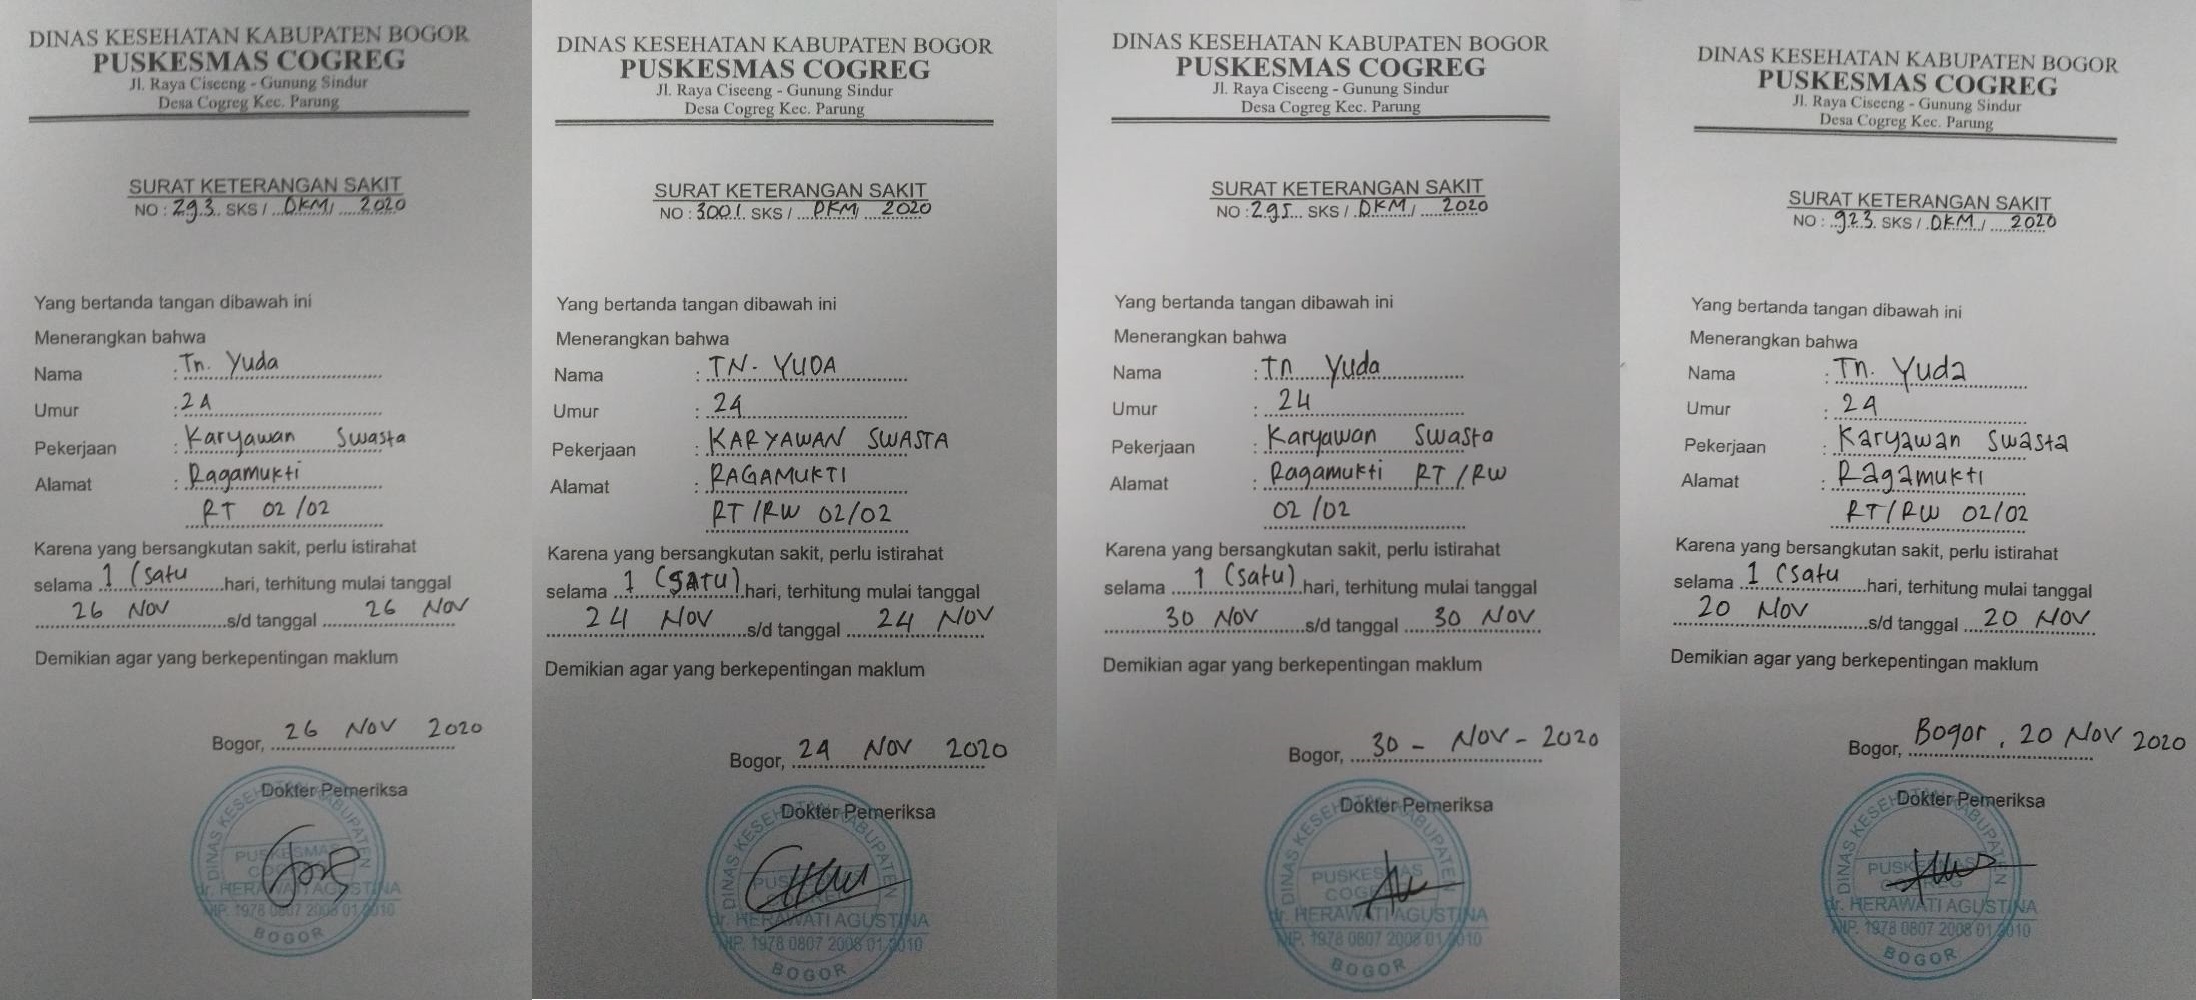 DINAS KESEHATAN KABUPATEN BOGOR
PUSKESMAS COGREG
Jl. Raya Ciseeng - Gunung Sindur
Desa Cogreg Kec. Parung
SURAT KETERANGAN SAKIT
NO : 293 SKS / DKM / 2020
Yang bertanda tangan dibawah ini
Menerangkan bahwa
Nama : Tn. Yuda
Umur : 24
Pekerjaan : Karyawan Swasta
Alamat : Ragamukti
RT 02/02
Karena yang bersangkutan sakit, perlu istirahat
selama 1 (satu hari, terhitung mulai tanggal
26 NOV s/d tanggal 26 NOV
Demikian agar yang berkepentingan maklum
Bogor, 26 NOV 2020
Dokter Pemeriksa
DINAS KESEHATAN KABUPATEN
PUSKESMAS
COGREG
dr. HERAWATI AGUSTINA
NIP. 1978 0807 2008 01 2010
BOGOR
DINAS KESEHATAN KABUPATEN BOGOR
PUSKESMAS COGREG
Jl. Raya Ciseeng - Gunung Sindur
Desa Cogreg Kec. Parung
SURAT KETERANGAN SAKIT
NO : 3001 SKS / DKM 2020
Yang bertanda tangan dibawah ini
Menerangkan bahwa
Nama : TN. YUDA
Umur : 24
Pekerjaan : KARYAWAN SWASTA
Alamat : RAGAMUKTI
RT/RW 02/02
Karena yang bersangkutan sakit, perlu istirahat
selama 1 (SATU) hari, terhitung mulai tanggal
24 NOV s/d tanggal 24 NOV
Demikian agar yang berkepentingan maklum
Bogor, 24 NOV 2020
Dokter Pemeriksa
DINAS KESEHATAN KABUPATEN
dr. HERAWATI AGUSTINA
NIP. 1978 0807 2008 01 2010
BOGOR
DINAS KESEHATAN KABUPATEN BOGOR
PUSKESMAS COGREG
Jl. Raya Ciseeng - Gunung Sindur
Desa Cogreg Kec. Parung
SURAT KETERANGAN SAKIT
NO : 295 SKS / DKM / 2020
Yang bertanda tangan dibawah ini
Menerangkan bahwa
Nama : Tn Yuda
Umur : 24
Pekerjaan : Karyawan Swasta
Alamat : Ragamukti RT/RW
02/02
Karena yang bersangkutan sakit, perlu istirahat
selama 1 (satu) hari, terhitung mulai tanggal
30 NOV s/d tanggal 30 NOV
Demikian agar yang berkepentingan maklum
Bogor, 30 - NOV - 2020
Dokter Pemeriksa
DINAS KESEHATAN KABUPATEN
PUSKESMAS
COGREG
dr. HERAWATI AGUSTINA
NIP. 1978 0807 2008 01 2010
BOGOR
DINAS KESEHATAN KABUPATEN BOGOR
PUSKESMAS COGREG
Jl. Raya Ciseeng - Gunung Sindur
Desa Cogreg Kec. Parung
SURAT KETERANGAN SAKIT
NO : 923 SKS / DKM / 2020
Yang bertanda tangan dibawah ini
Menerangkan bahwa
Nama : Tn. Yuda
Umur : 24
Pekerjaan : Karyawan Swasta
Alamat : Ragamukti
RT/RW 02/02
Karena yang bersangkutan sakit, perlu istirahat
selama 1 (satu hari, terhitung mulai tanggal
20 NOV s/d tanggal 20 NOV
Demikian agar yang berkepentingan maklum
Bogor, Bogor, 20 NOV 2020
Dokter Pemeriksa
DINAS KESEHATAN KABUPATEN
PUSKESMAS
COGREG
dr. HERAWATI AGUSTINA
NIP. 1978 0807 2008 01 2010
BOGOR